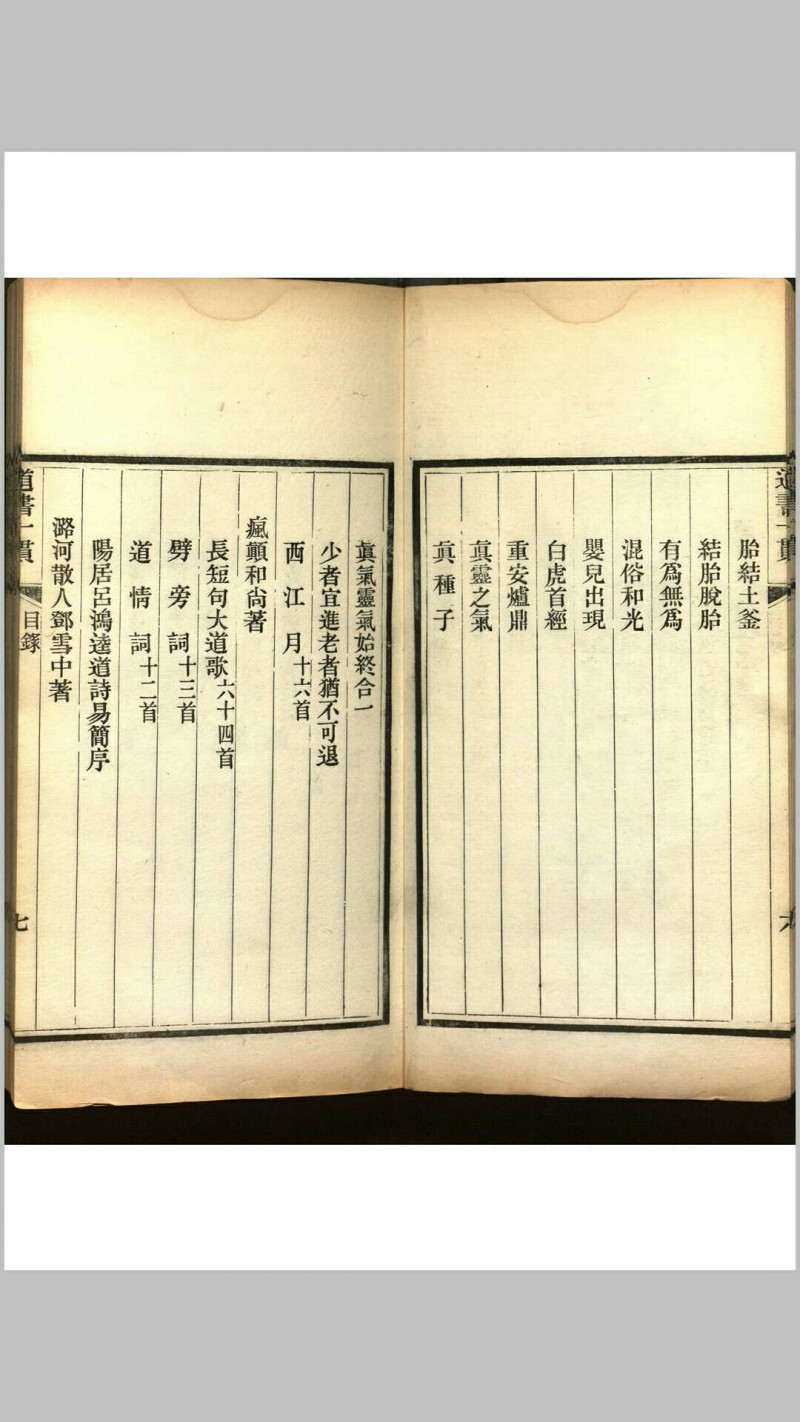 胎結土釜
結胎脫胎
有爲無爲
混俗和光
嬰兒出現
白虎首經
重安爐鼎
眞靈之氣
眞種子
眞氣靈氣始終合一
少者宜進老者猶不可退
西江月十六首
瘋顛和尙著
長短句大道歌六十四首
劈旁詞十三首
道情詞十二首
陽居呂鴻逵道詩易簡序
潞河散人鄧雪中著
道書一貫
目錄
七